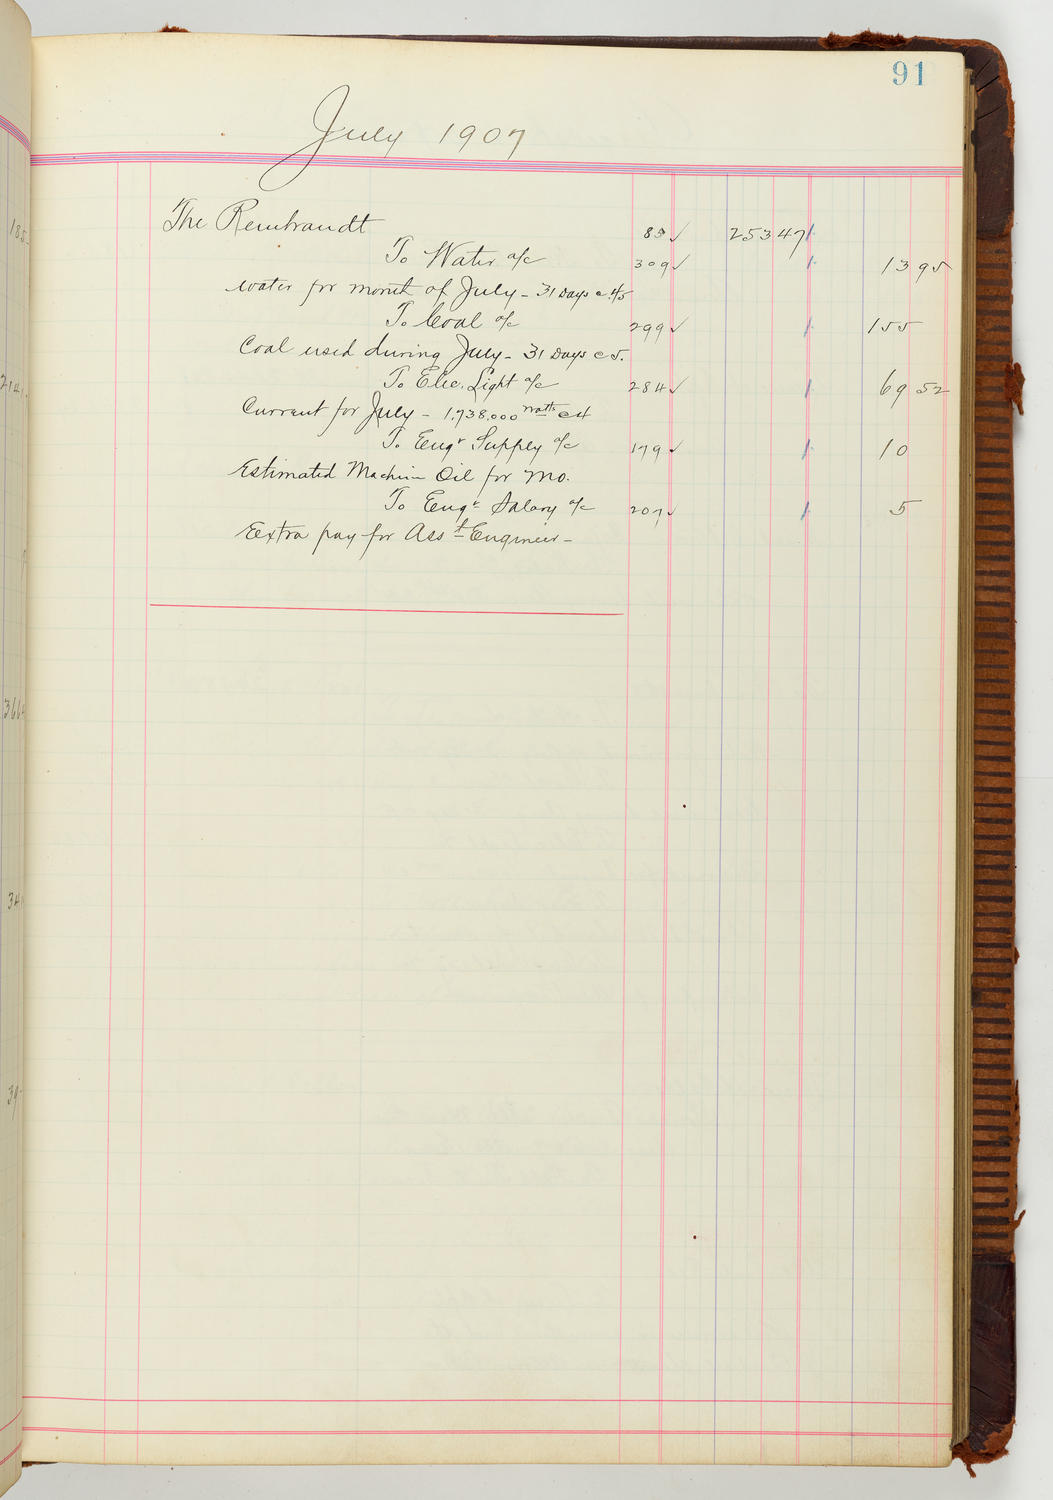 91
July 1907
The Rembrandt 85 ✓ 253 47
To Water a/c 309 ✓ 13 95
water for month of July - 31 Days @ .45
To Coal a/c 299 ✓ 155
Coal used during July - 31 Days @ 5.
To Elec. Light a/c 284 ✓ 69 52
Current for July - 1,738,000 watts @ 4
To Engr Supply a/c 179 ✓ 10
Estimated Machine Oil for Mo.
To Engr Salary a/c 207 ✓ 5
Eextra pay for Asst Engineer -
185
214
366
34
39